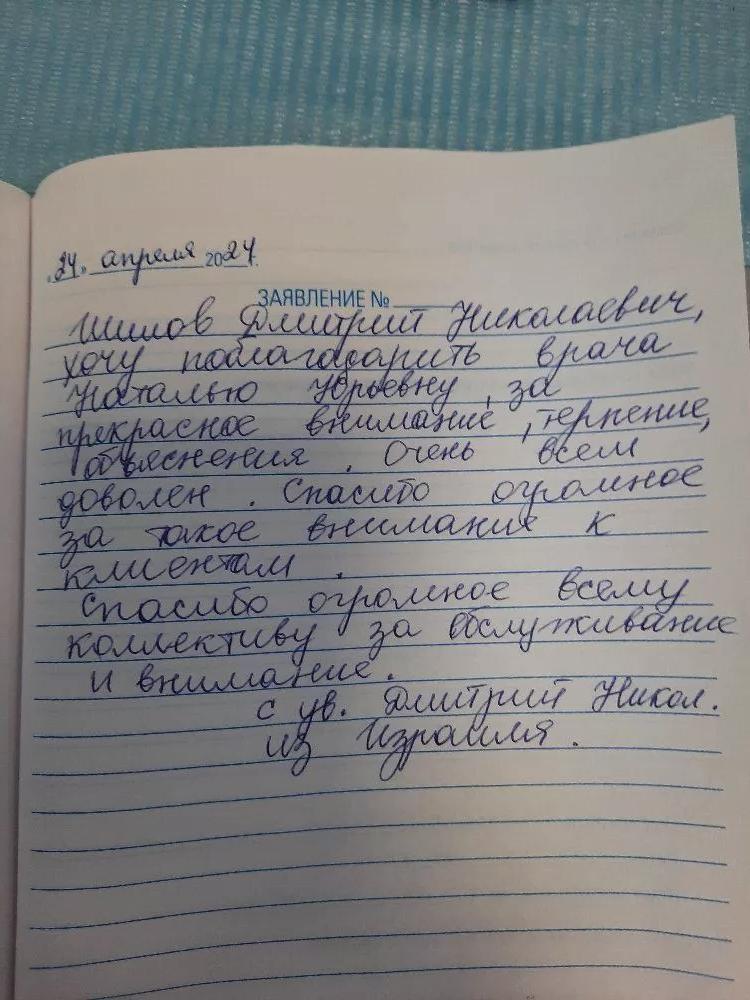 „24“ апреля 2024г.
ЗАЯВЛЕНИЕ №
Шилов Дмитрий Николаевич,
хочу поблагодарить врача
Наталью Юрьевну, за
прекрасное внимание, терпение,
объяснения. Очень всем
доволен. Спасибо огромное
за такое внимание к
клиентам.
Спасибо огромное всему
коллективу за обслуживание
и внимание.
С ув. Дмитрий Никол.
из Израиля.